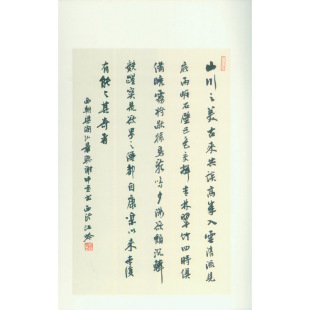 山川之美古来共談高峯入雲清流見
底兩岸石壁五色交輝青林翠竹四時俱
備曉霧將歇猿鳥亂鳴夕日欲頹沉鱗
競躍實是欲界之仙都自康樂以來未復
有能與其奇者